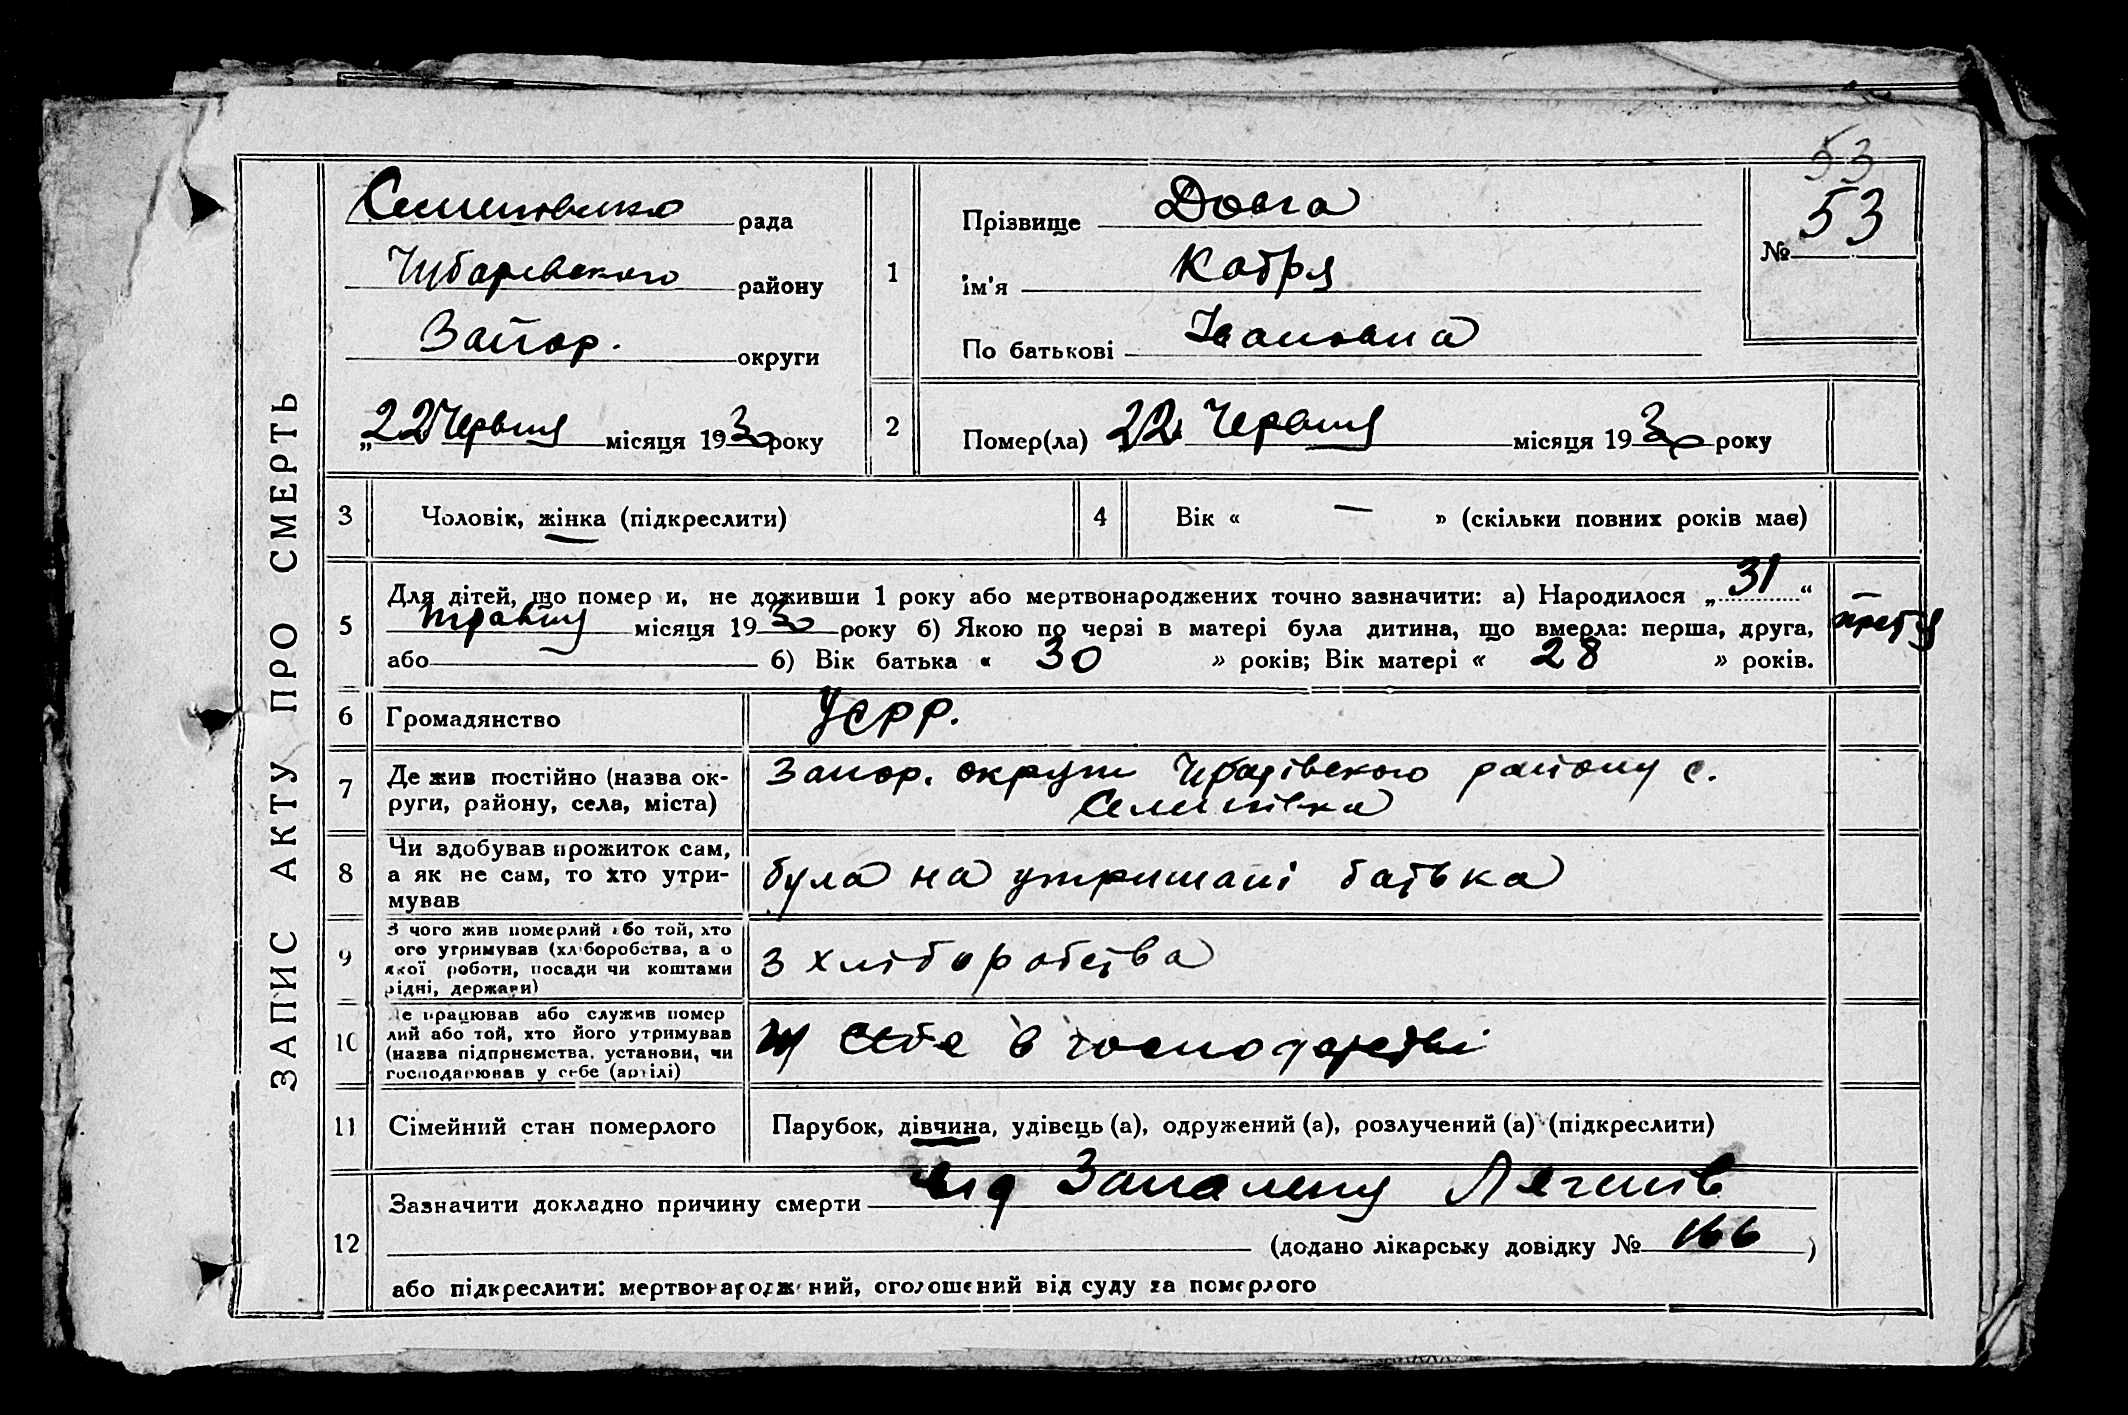 53
ЗАПИС АКТУ ПРО СМЕРТЬ
рада
Чубаревського району
Запор. округи
„22 Червня місяця 1930 року
1
Прізвище Довга
ім'я Катря
По батькові Івановна
№ 53
2
Помер(ла) 22 Червня місяця 1930 року
3
Чоловік, жінка (підкреслити)
4
Вік « — » (скільки повних років має)
5
Для дітей, що помер и, не доживши 1 року або мертвонароджених точно зазначити: а) Народилося „31“
травня місяця 1930 року б) Якою по черзі в матері була дитина, що вмерла: перша, друга, третя
або б) Вік батька « 30 » років; Вік матері « 28 » років.
6
Громадянство
УСРР.
7
Де жив постійно (назва ок-
руги, району, села, міста)
Запор. округи Чубарівского району с.
Семенівка
8
Чи здобував прожиток сам,
а як не сам, то хто утри-
мував
була на утримані батька
9
З чого жив померлий або той, хто
ого утримував (хліборобства, а о
якої роботи, посади чи коштами
рідні, держави)
з хліборобства
10
Де працював або служив помер
лий або той, хто його утримував
(назва підприємства, установи, чи
господарював у себе (артілі)
у себе в господарстві
11
Сімейний стан померлого
Парубок, дівчина, удівець (а), одружений (а), розлучений (а) (підкреслити)
12
Зазначити докладно причину смерти від Запаленя Легенів
(додано лікарську довідку № 166)
або підкреслити: мертвонароджений, оголошений від суду за померлого